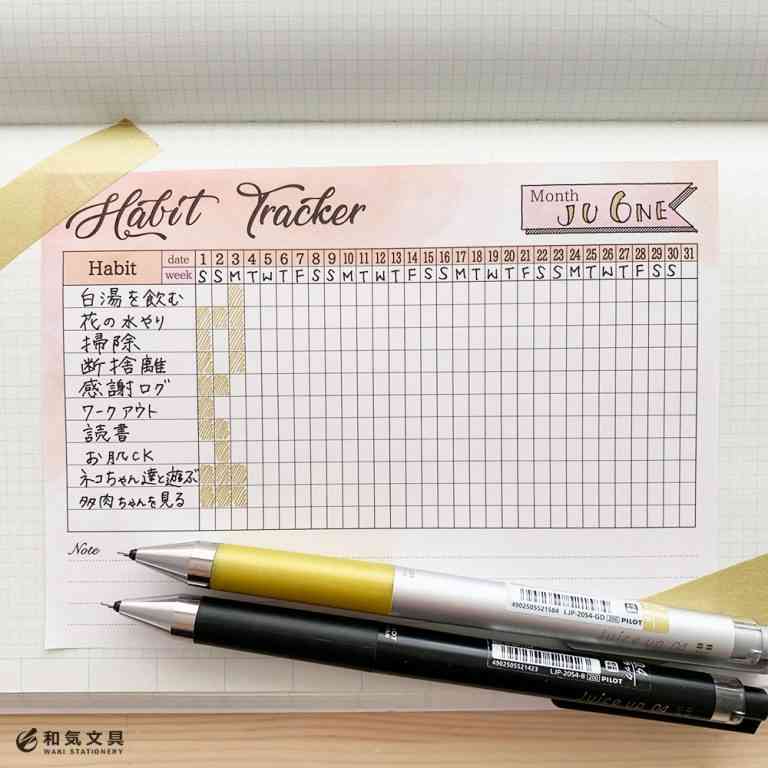 Habit Tracker
Month JUNE
Habit date 1 2 3 4 5 6 7 8 9 10 11 12 13 14 15 16 17 18 19 20 21 22 23 24 25 26 27 28 29 30 31
week S S M T W T F S S M T W T F S S M T W T F S S M T W T F S S
白湯を飲む
花の水やり
掃除
断捨離
感謝ログ
ワークアウト
読書
お肌CK
ネコちゃん達と遊ぶ
多肉ちゃんを見る
Note
4902505521584 LJP-20S4-GD 200 PILOT
Juice up 04
4902505521423 LJP-20S4-B 200 PILOT
Juice up 04
和気文具
WAKI STATIONERY